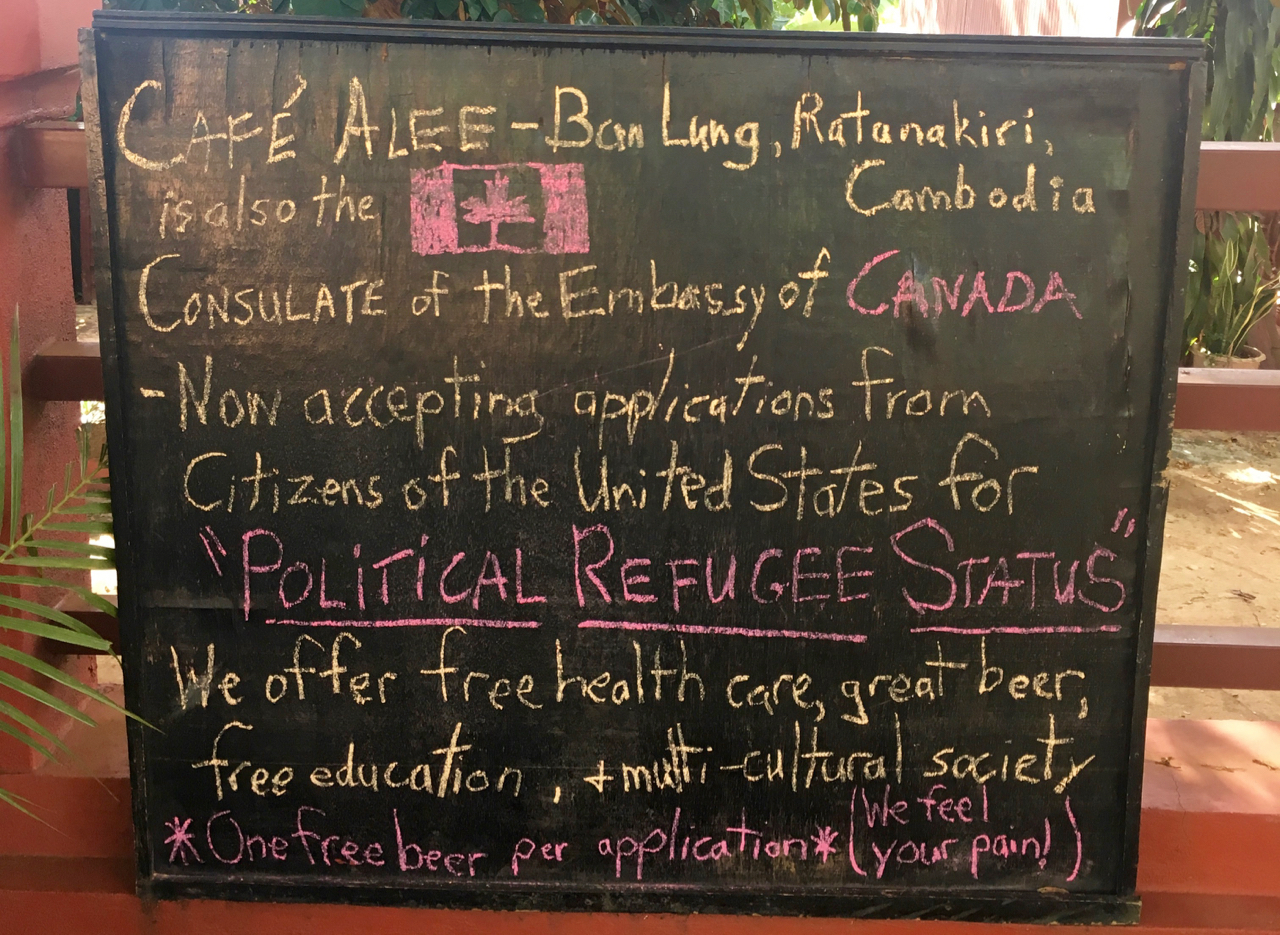 CAFÉ ALEE - Ban Lung, Ratanakiri,
Cambodia
is also the
CONSULATE of the Embassy of CANADA
- Now accepting applications from
Citizens of the United States for
"POLITICAL REFUGEE STATUS"
We offer free health care, great beer,
free education, + multi-cultural society
*One free beer per application* (We feel
your pain!)